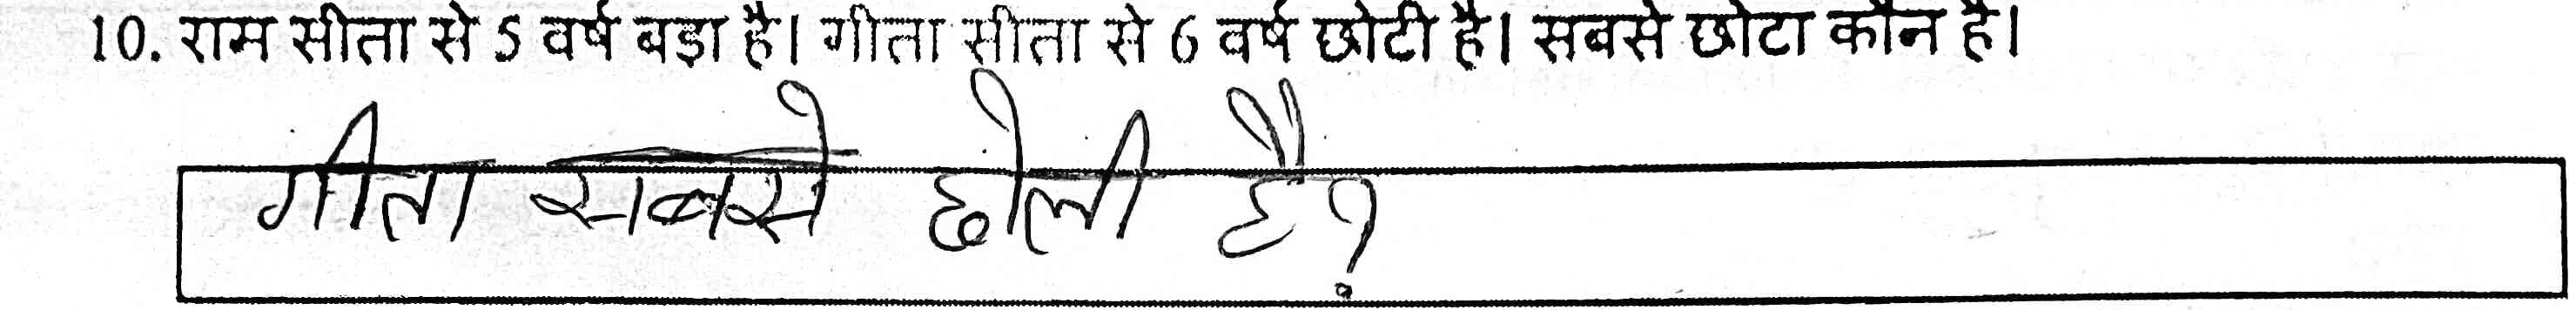 10. राम सीता से 5 वर्ष बड़ा है। गीता सीता से 6 वर्ष छोटी है। सबसे छोटा कौन है।
गीता सबसे छोली है?